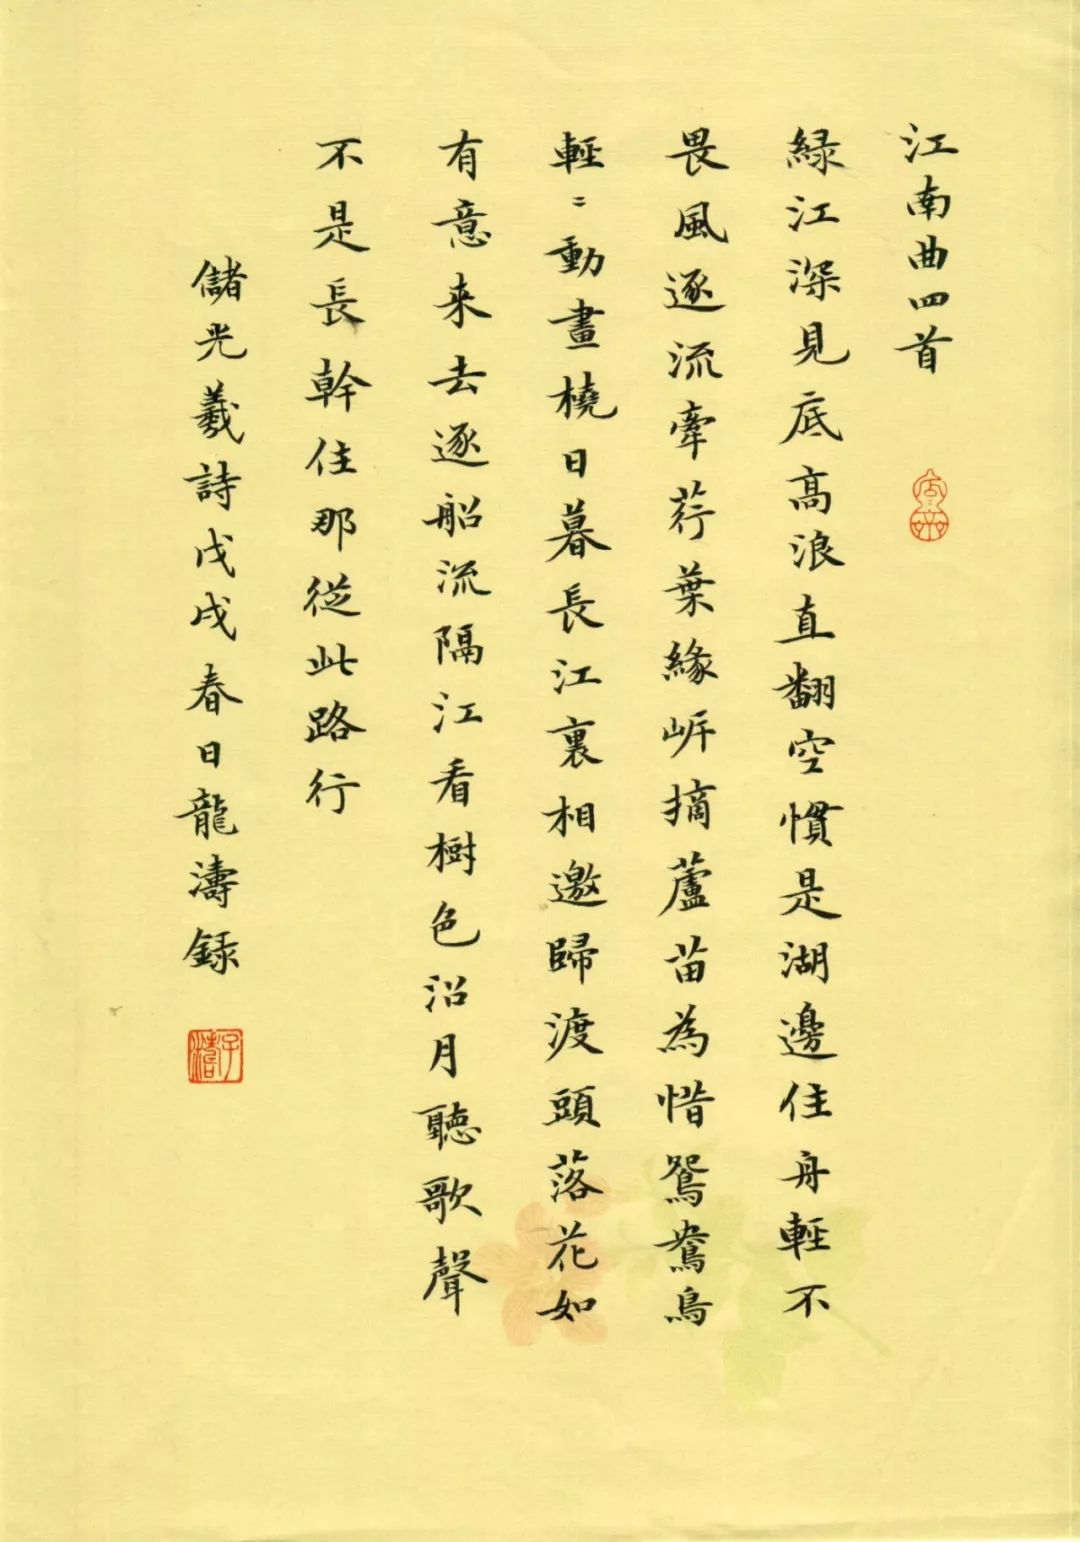 江南曲四首
緑江深見底高浪直翻空慣是湖邊住舟輕不
畏風逐流牽荇葉緣岓摘蘆苗為惜鴛鴦鳥
輕〻動畫橈日暮長江裏相邀歸渡頭落花如
有意来去逐船流隔江看樹色沿月聽歌聲
不是長幹住那從此路行
儲光羲詩戊戌春日龍濤録